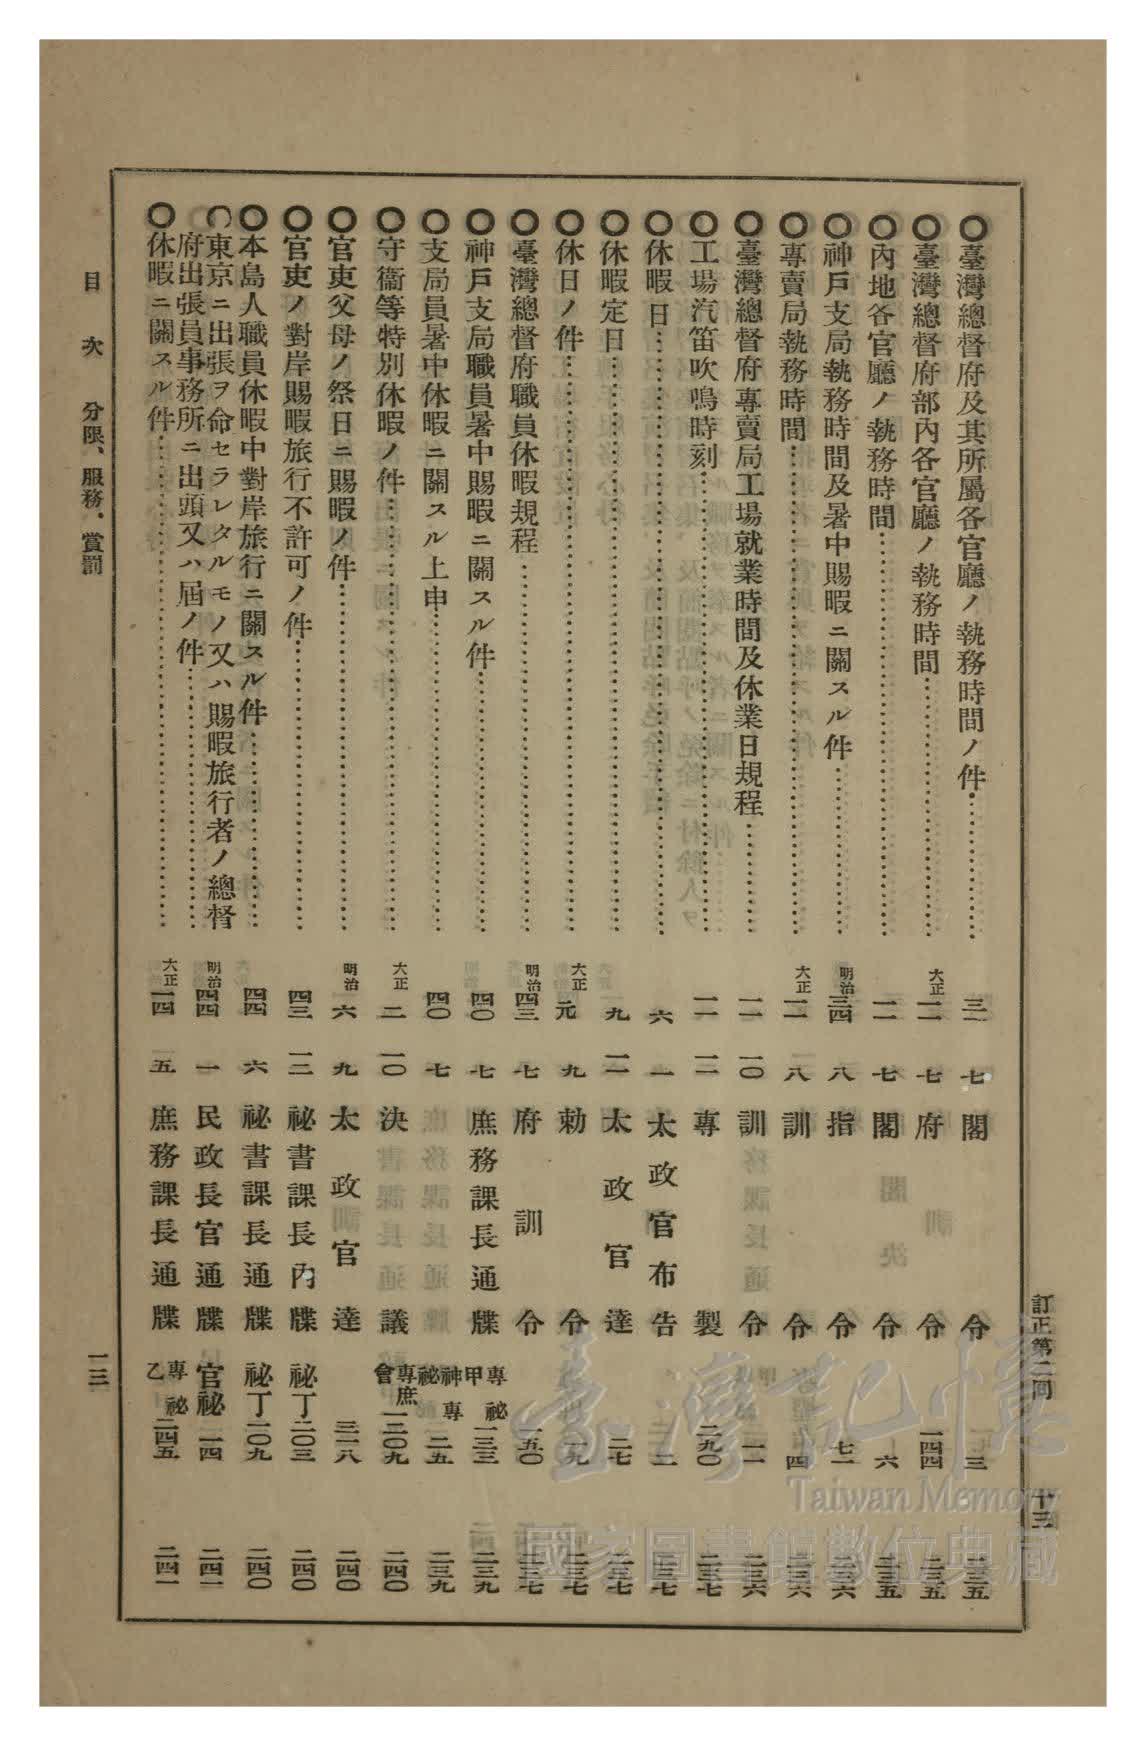 訂正第二回 十三
○臺灣總督府及其所屬各官廳ノ執務時間ノ件 三一 七 閣令 三 二三五
○臺灣總督府部內各官廳ノ執務時間 大正一一 七 府訓令 一四四 二三五
○內地各官廳ノ執務時間 一一 七 閣令 六 二三五
○神戶支局執務時間及暑中賜暇ニ關スル件 明治三四 八 指令 七一 二三六
○專賣局執務時間 大正一一 八 訓令 四 二三六
○臺灣總督府專賣局工場就業時間及休業日規程 一一 一〇 訓令 一一 二三六
○工場汽笛吹鳴時刻 一一 一二 專製 二九〇 二三七
○休暇日 六 一 太政官布告 二 二三七
○休暇定日 九 一一 太政官達 二七 二三七
○休日ノ件 大正元 九 勅令 一九 二三七
○臺灣總督府職員休暇規程 明治四三 七 府訓令 一五〇 二三七
○神戶支局職員暑中賜暇ニ關スル件 四〇 七 庶務課長通牒 專祕甲 一三三 二三九
○支局員暑中休暇ニ關スル上申 四〇 七 神專祕 二五 二三九
○守衞等特別休暇ノ件 大正二 一〇 決議 專庶會 一三〇九 二四〇
○官吏父母ノ祭日ニ賜暇ノ件 明治六 九 太政官達 三一八 二四〇
○官吏ノ對岸賜暇旅行不許可ノ件 四三 一二 祕書課長內牒 祕丁 二〇三 二四〇
○本島人職員休暇中對岸旅行ニ關スル件 四四 六 祕書課長通牒 祕丁 二〇九 二四〇
○東京ニ出張ヲ命セラレタルモノ又ハ賜暇旅行者ノ總督
府出張員事務所ニ出頭又ハ屆ノ件 明治四四 一 民政長官通牒 官祕 一四 二四一
○休暇ニ關スル件 大正一四 五 庶務課長通牒 專祕乙 二四五 二四一
目次 分限、服務、賞罰 一三
臺灣記憶
Taiwan Memory
國家圖書館數位典藏